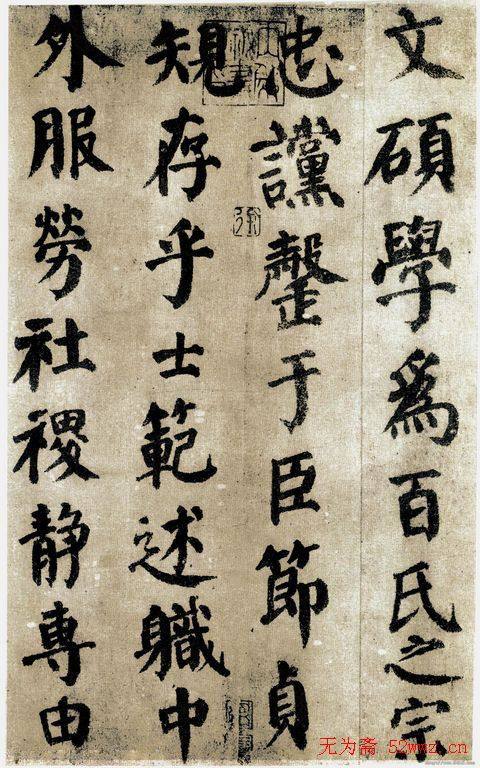 文硕學為百氏之宗
忠讜罄于臣節貞
規存乎士範述職中
外服勞社稷静專由
无为斋 52wwz.cn